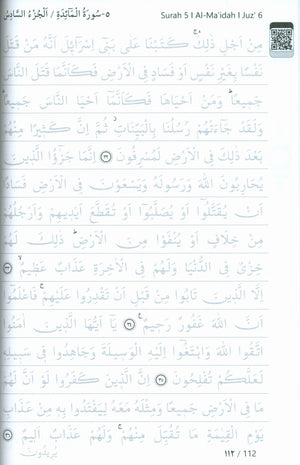 ٥-سُورَةُ الْمَائِدَةِ / اَلْجُزْءُ السَّادِسُ
Surah 5 I Al-Ma'idah I Juz' 6
مِنْ اَجْلِ ذٰلِكَ كَتَبْنَا عَلٰى بَنٖى اِسْرَآئٖلَ اَنَّهُ مَنْ قَتَلَ
نَفْسًا بِغَيْرِ نَفْسٍ اَوْ فَسَادٍ فِى الْاَرْضِ فَكَاَنَّمَا قَتَلَ النَّاسَ
جَمٖيعًا وَمَنْ اَحْيَاهَا فَكَاَنَّمَٓا اَحْيَا النَّاسَ جَمٖيعًا
وَلَقَدْ جَٓاءَتْهُمْ رُسُلُنَا بِالْبَيِّنَاتِ ثُمَّ اِنَّ كَثٖيرًا مِنْهُمْ
بَعْدَ ذٰلِكَ فِى الْاَرْضِ لَمُسْرِفُونَ ٣٢ اِنَّمَا جَزٰٓؤُا الَّذٖينَ
يُحَارِبُونَ اللّٰهَ وَرَسُولَهُ وَيَسْعَوْنَ فِى الْاَرْضِ فَسَادًا
اَنْ يُقَتَّلُٓوا اَوْ يُصَلَّبُٓوا اَوْ تُقَطَّعَ اَيْدٖيهِمْ وَاَرْجُلُهُمْ
مِنْ خِلَافٍ اَوْ يُنْفَوْا مِنَ الْاَرْضِ ذٰلِكَ لَهُمْ
خِزْىٌ فِى الدُّنْيَا وَلَهُمْ فِى الْاٰخِرَةِ عَذَابٌ عَظٖيمٌ ٣٣
اِلَّا الَّذٖينَ تَابُوا مِنْ قَبْلِ اَنْ تَقْدِرُوا عَلَيْهِمْ فَاعْلَمُٓوا
اَنَّ اللّٰهَ غَفُورٌ رَحٖيمٌ ٣٤ يَٓا اَيُّهَا الَّذٖينَ اٰمَنُوا
اتَّقُوا اللّٰهَ وَابْتَغُٓوا اِلَيْهِ الْوَسٖيلَةَ وَجَاهِدُوا فٖى سَبٖيلِهٖ
لَعَلَّكُمْ تُفْلِحُونَ ٣٥ اِنَّ الَّذٖينَ كَفَرُوا لَوْ اَنَّ لَهُمْ
مَا فِى الْاَرْضِ جَمٖيعًا وَمِثْلَهُ مَعَهُ لِيَفْتَدُوا بِهٖ مِنْ عَذَابِ
يَوْمِ الْقِيٰمَةِ مَا تُقُبِّلَ مِنْهُمْ وَلَهُمْ عَذَابٌ اَلٖيمٌ ٣٦
يُرٖيدُونَ
١١٢ / 112